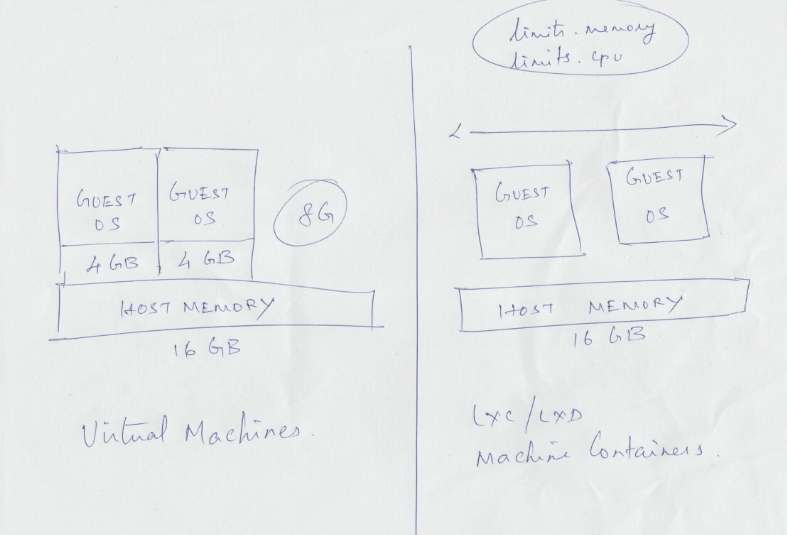 GUEST
OS
GUEST
OS
8G
4 GB
4 GB
HOST MEMORY
16 GB
Virtual Machines.
limits.memory
limits.cpu
GUEST
OS
GUEST
OS
HOST MEMORY
16 GB
LXC/LXD
Machine Containers.